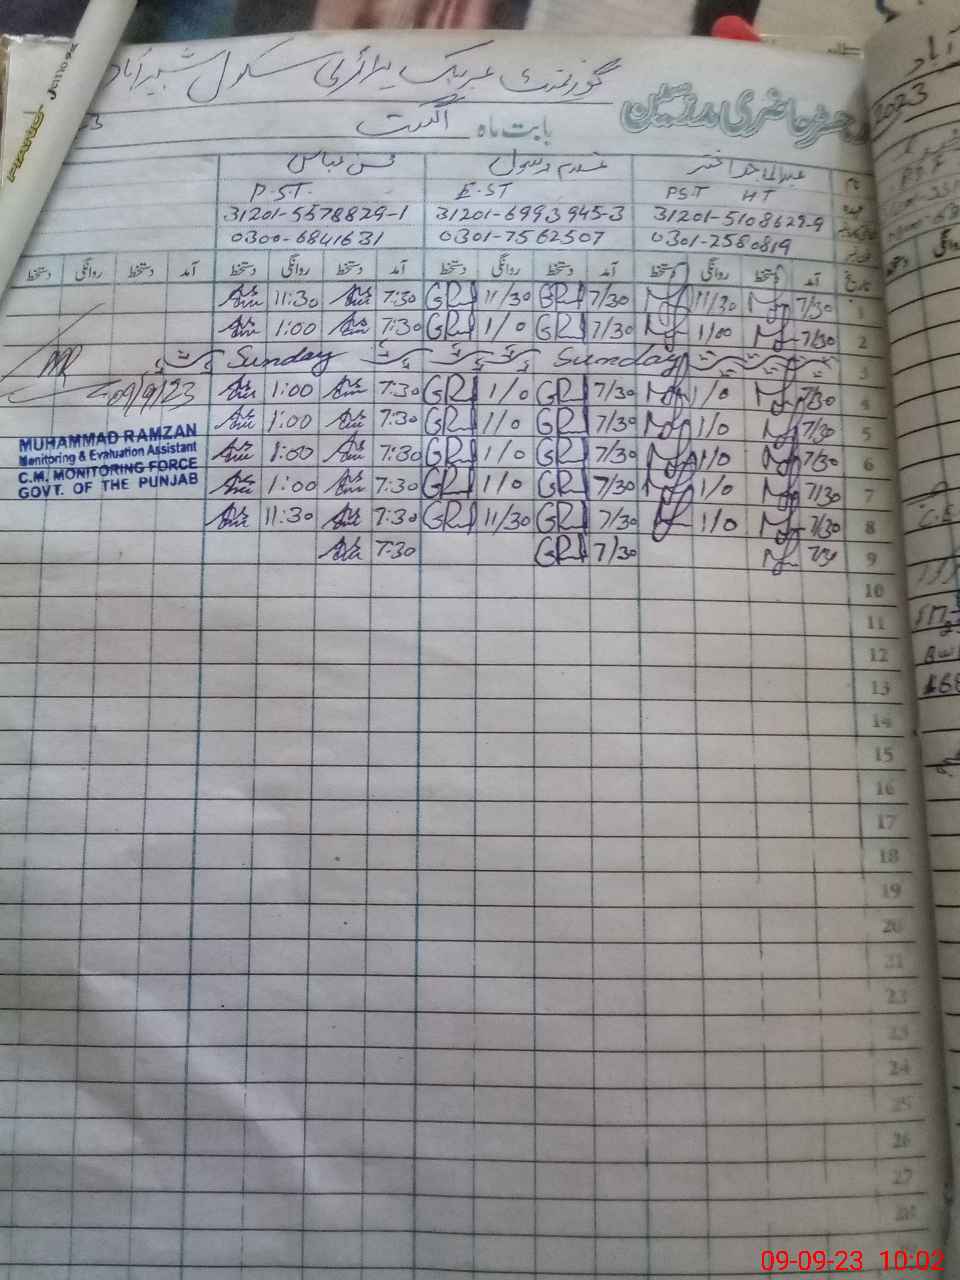 گورنمنٹ عربک پرائمری سکول شبیرآباد
حاضری مدرسین
بابت ماہ اگست
نام عبدالماجد اختر غلام رسول محسن عباس
عہدہ PST HT E.ST P.S.T.
31201-5108629-9 31201-6993945-3 31201-5578829-1
0301-2580819 0301-7562507 0300-6841631
تاریخ آمد دستخط روانگی دستخط آمد دستخط روانگی دستخط آمد دستخط روانگی دستخط آمد دستخط روانگی دستخط
1 7/30 11/30 7/30 GRM 11/30 GRM 7:30 11:30
2 7/30 1/00 7/30 GRM 1/0 GRM 7:30 1:00
3 Sunday Sunday
4 7/30 1/0 7/30 GRM 1/0 GRM 7:30 1:00
5 7/30 1/0 7/30 GRM 1/0 GRM 7:30 1:00
6 7/30 1/0 7/30 GRM 1/0 GRM 7:30 1:00
7 7/30 1/0 7/30 GRM 1/0 GRM 7:30 1:00
8 7/30 1/0 7/30 GRM 11/30 GRM 7:30 11:30
9 7/30 7/30 GRM 7:30
10
11
12
13
14
15
16
17
18
19
20
21
22
23
24
25
26
27
28
09/9/23
MUHAMMAD RAMZAN
Monitoring & Evaluation Assistant
C.M. MONITORING FORCE
GOVT. OF THE PUNJAB
2023
09-09-23 10:02